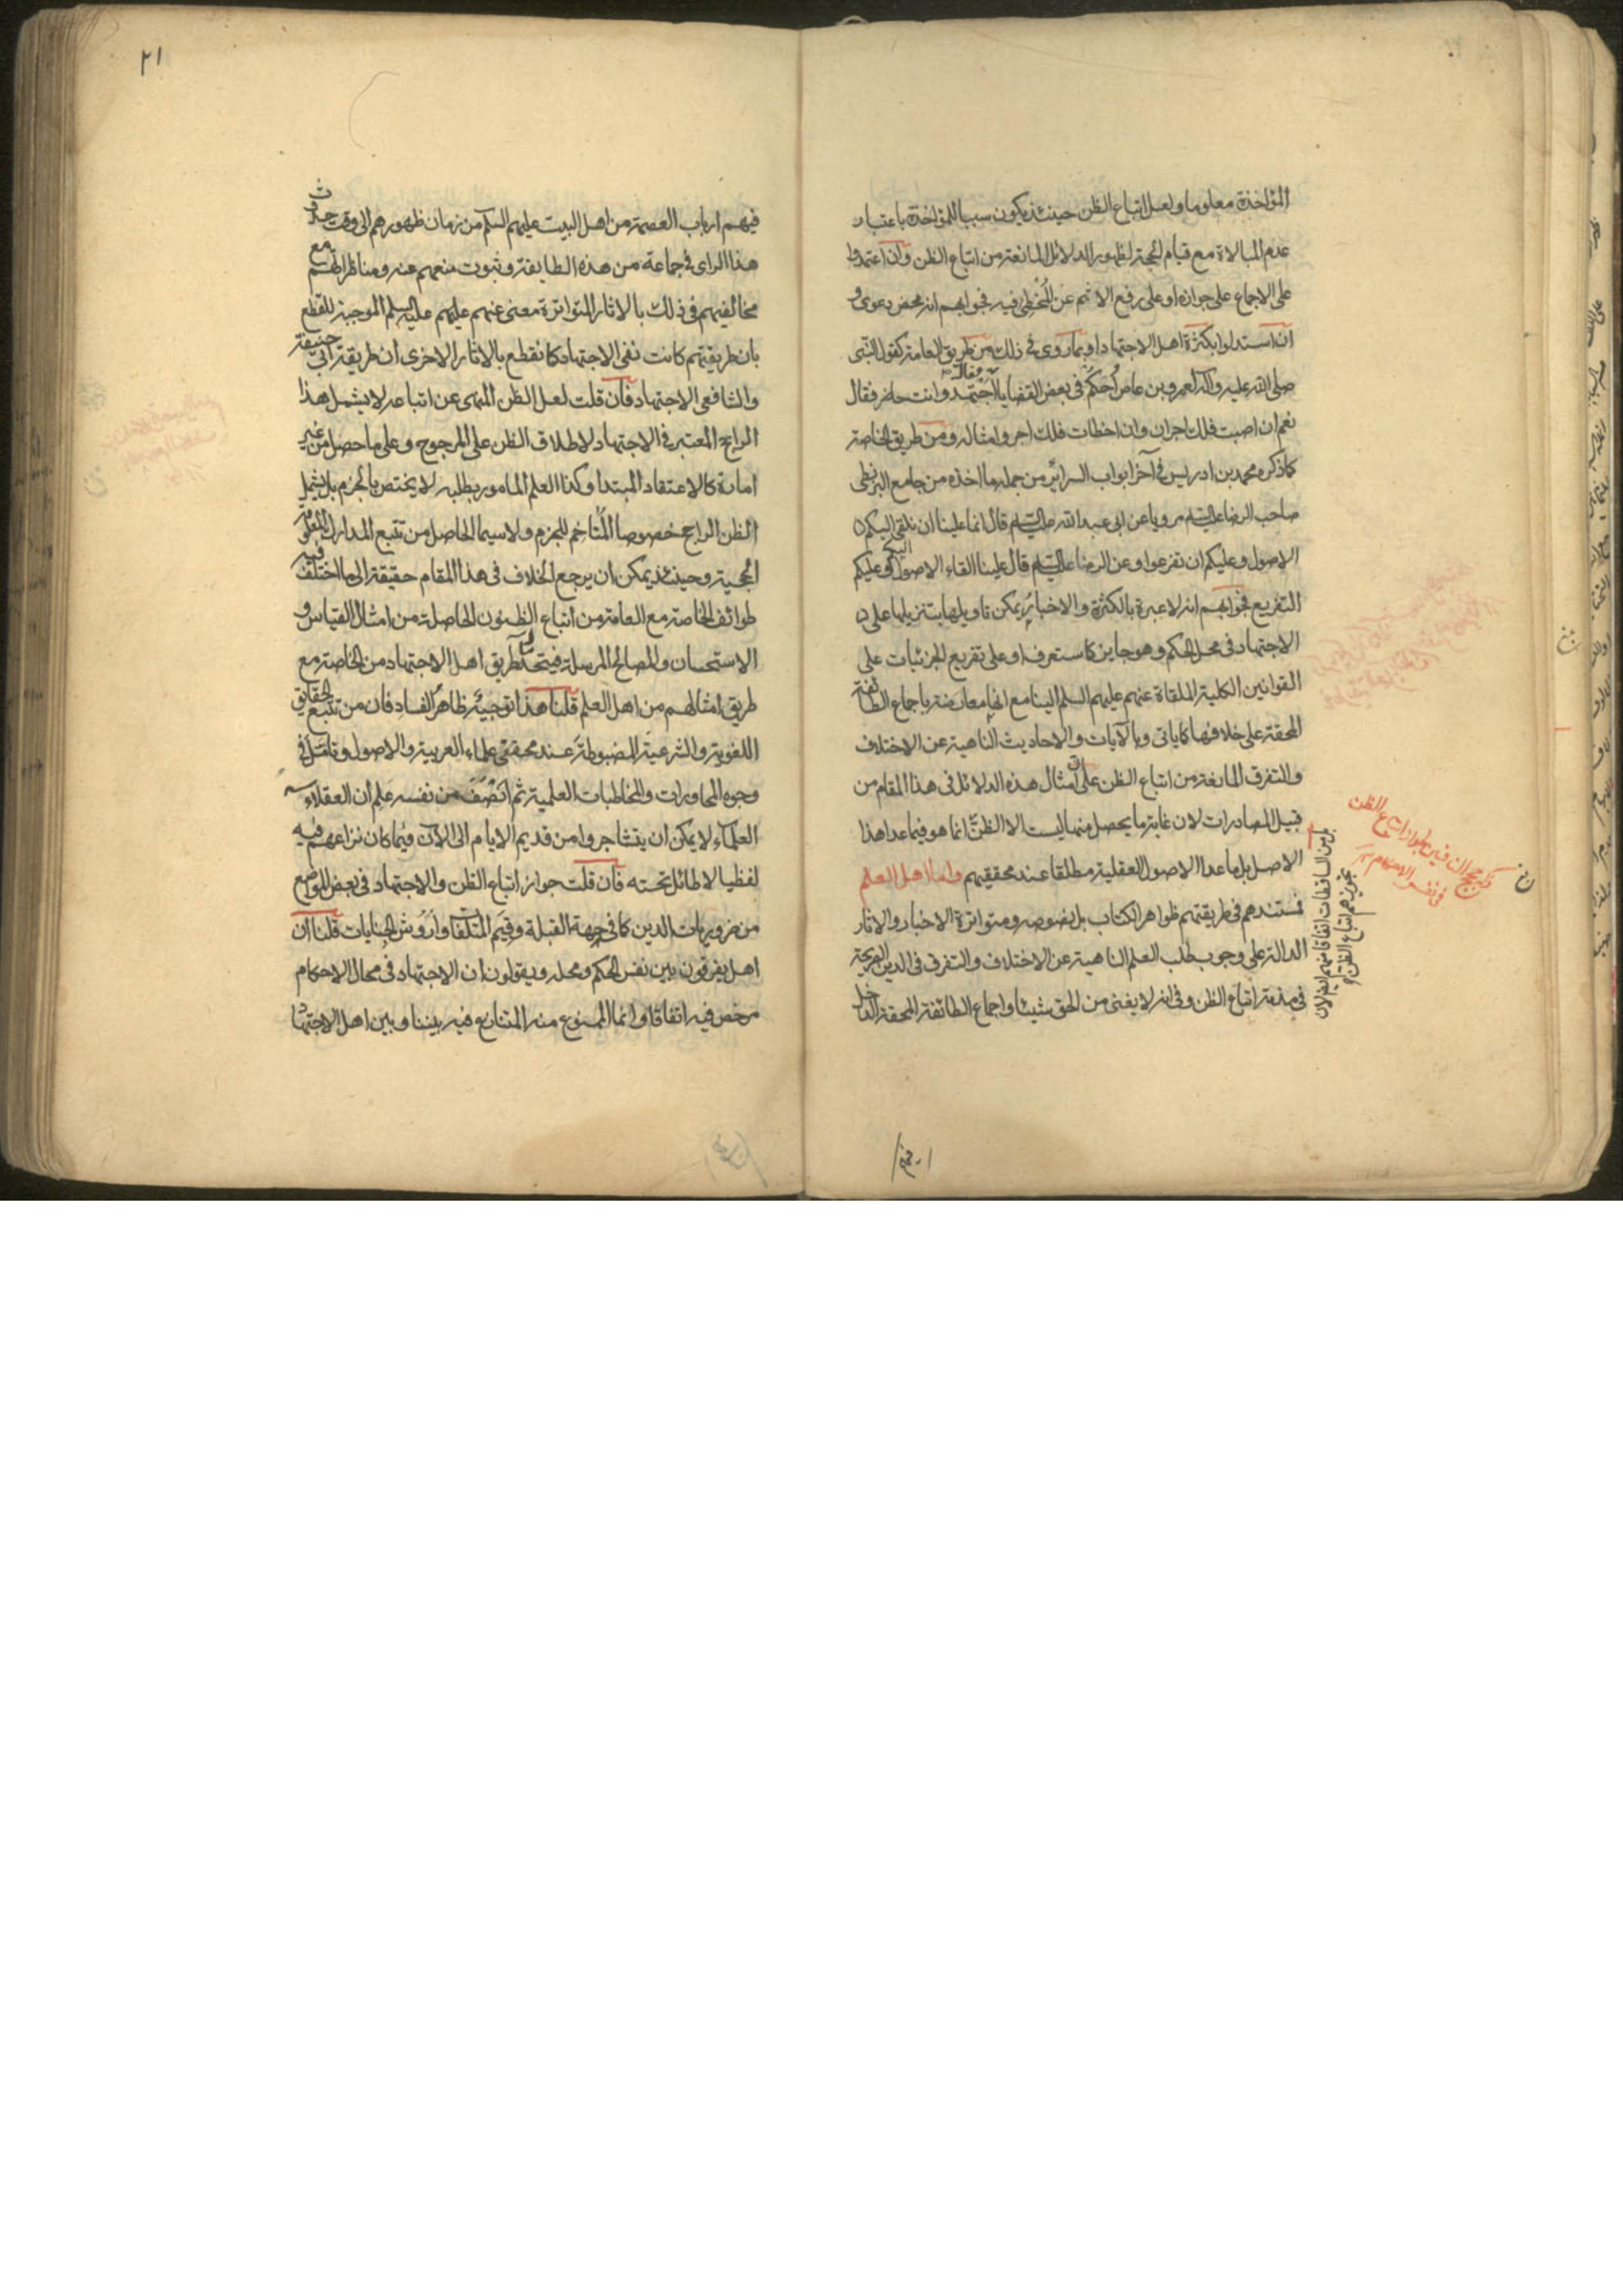 المؤاخذة معلوما ولعل اتباع الظن حينئذ يكون سببا للمؤاخذة باعتبار
عدم المبالاة مع قيام الحجة لظهور الدلائل المانعة من اتباع الظن وان اعتمدوا
على الاجماع على جوازه او على رفع الاثم عن المخطى فيه فجوابهم انه محض دعوى و
ان استدلوا بكثرة اهل الاجتهاد او بما روى فى ذلك من طريق العامة كقول النبى
صلى الله عليه وآله لعمرو بن عاص أحكم فى بعض القضايا فقال اجتهد وانت حاضر فقال
نعم ان اصبت فلك اجران وان اخطات فلك اجر وامثاله ومن طريق الخاصة
كما ذكره محمد بن ادريس فى آخر ابواب السرائر من جمله ما اخذه من جامع البزنطى
صاحب الرضا عليه السلام مرويا عن ابى عبد الله عليه السلام قال انما علينا ان نلقى اليكم
الاصول وعليكم ان تفرعوا وعن الرضا عليه السلام قال علينا القاء الاصول اليكم وعليكم
التفريع فجوابهم انه لا عبرة بالكثرة والاخبار يمكن تاويلها بتنزيلها على
الاجتهاد فى محل الحكم وهو جايز كما ستعرف او على تفريع الجزئيات على
القوانين الكلية الملقاة عنهم عليهم السلم الينا مع انها معارضة باجماع الطائفة
المحقة على خلافها كما ياتى وبالآيات والاحاديث الناهية عن الاختلاف
والتفرق المانعة من اتباع الظن على ان امثال هذه الدلائل فى هذا المقام من
قبيل المصادرات لان غاية ما يحصل منها ليست الا الظن انما هو فيما عدا هذا
الاصل بل ما عدا الاصول العقلية مطلقا عند محققيهم واما اهل العلم
فمستندهم فى طريقتهم ظواهر الكتاب بل نصوصه ومتواترة الاخبار والاثار
الدالة على وجوب طلب العلم الناهية عن الاختلاف والتفرق فى الدين الصريحة
فى مذمة اتباع الظن وفى انه لا يغنى من الحق شيئا واجماع الطائفة المحقة الداخل
بل من الساقطات اتفاقا منهم لان
تجويزهم اتباع الظن
فى نفس الاحكام
٢١
فيهم ارباب العصمة من اهل البيت عليهم السلم من زمان ظهورهم الى وقت حدوث
هذا الراى فى جماعة من هذه الطايفة وثبوت منعهم عنه ومناظراتهم مع
مخالفيهم فى ذلك بالاثار المتواترة معنى عنهم عليهم السلم الموجبة للقطع
بان طريقتهم كانت نفى الاجتهاد كما نقطع بالاثار الاخرى ان طريقة ابى حنيفة
والشافعى الاجتهاد فان قلت لعل الظن المنهى عن اتباعه لا يشمل هذا
الراجح المعتبر فى الاجتهاد لاطلاق الظن على المرجوح وعلى ما حصل من غير
امارة كالاعتقاد المبتدأ وكذا العلم المامور بطلبه لا يختص بالجزم بل يشمل
الظن الراجح خصوصا المتاخم للجزم ولا سيما الحاصل من تتبع المدارك المعلومة
الحجية وحينئذ يمكن ان يرجع الخلاف فى هذا المقام حقيقة الى ما اختلف فيه
طوائف الخاصة مع العامة من اتباع الظنون الحاصلة من امثال القياس و
الاستحسان والمصالح المرسلة فيتحد طريق اهل الاجتهاد من الخاصة مع
طريق امثالهم من اهل العلم قلنا هذا توجيه ظاهر الفساد فان من تتبع الحقايق
اللغوية والشرعية المضبوطة عند محققى علماء العربية والاصول وتامل فى
وجوه المحاورات والمخاطبات العلمية ثم انصف من نفسه علم ان العقلاء
العلماء لا يمكن ان يتشاجروا من قديم الايام الى الآن وفيما كان نزاعهم فيه
لفظيا لا طائل تحته فان قلت جواز اتباع الظن والاجتهاد فى بعض المواضع
من ضروريات الدين كما فى جهة القبلة وقيم المتلفات وأروش الجنايات قلنا ان
اهل يفرقون بين نفس الحكم ومحله ويقولون ان الاجتهاد فى محال الاحكام
مرخص فيه اتفاقا وانما الممنوع منه المتنازع فيه بيننا وبين اهل الاجتهاد